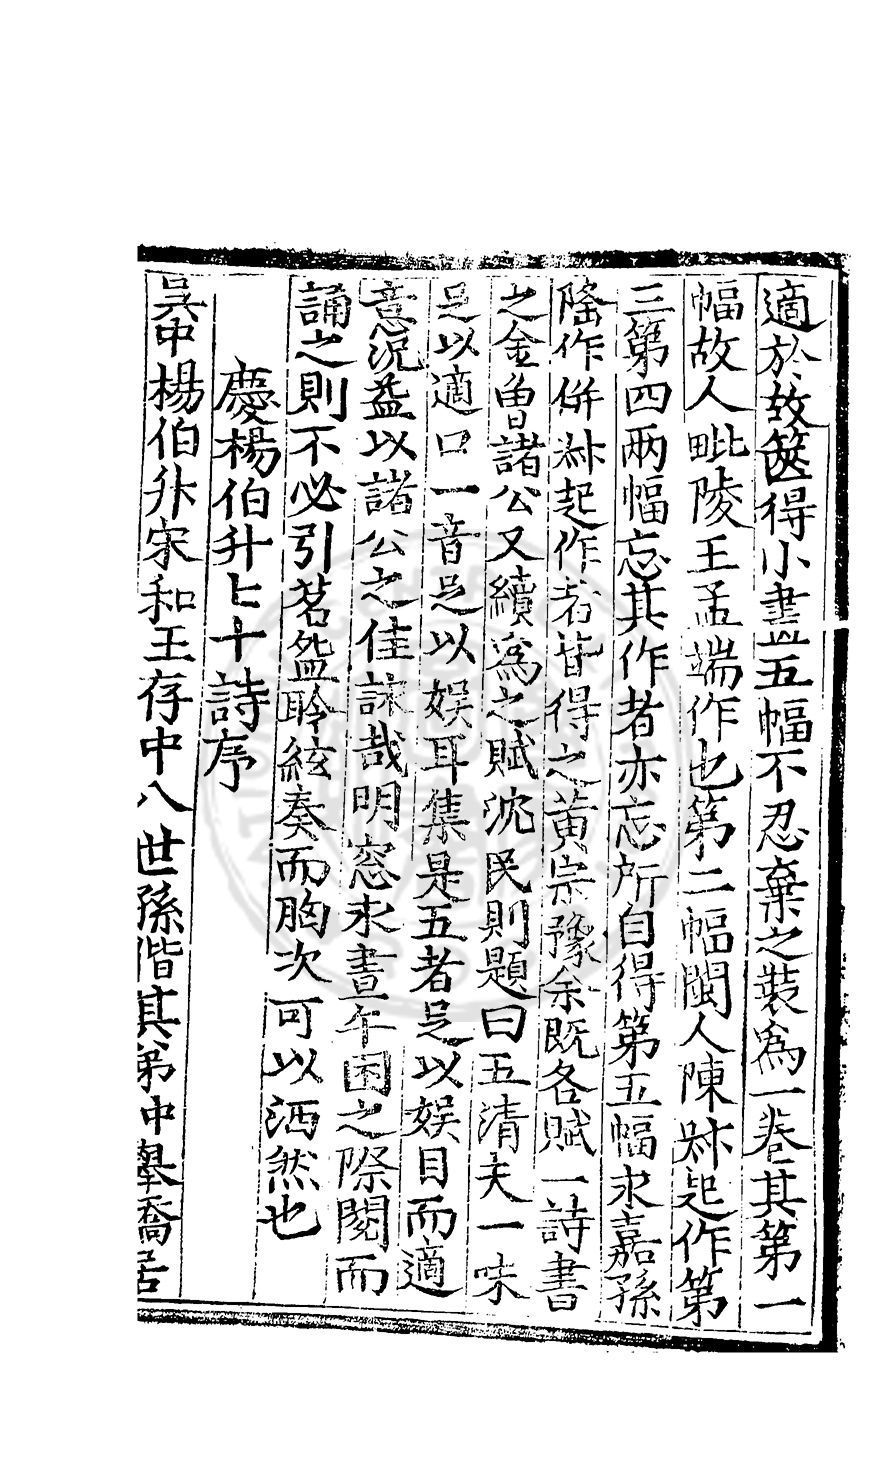 適於故篋得小畫五幅不忍棄之裝爲一卷其第一
幅故人毗陵王孟端作也第二幅閩人陳叔起作第
三第四兩幅忘其作者亦忘所自得第五幅永嘉孫
隆作併叔起作者皆得之黃宗豫余既各賦一詩書
之金曾諸公又續爲之賦沈民則題曰五清夫一味
足以適口一音足以娛耳集是五者足以娛目而適
意況益以諸公之佳詠哉明窓永晝午困之際閱而
誦之則不必引茗盌聆絃奏而胸次可以洒然也
慶楊伯升七十詩序
吳中楊伯升宋和王存中八世孫偕其弟中舉喬居